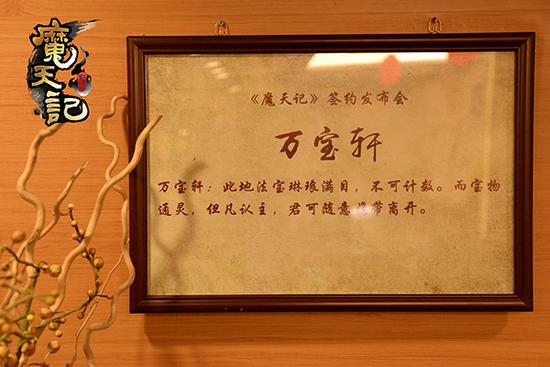 魔天記
《魔天记》签约发布会
万宝轩
万宝轩：此地法宝琳琅满目，不可计数。而宝物
通灵，但凡认主，君可随意携带离开。